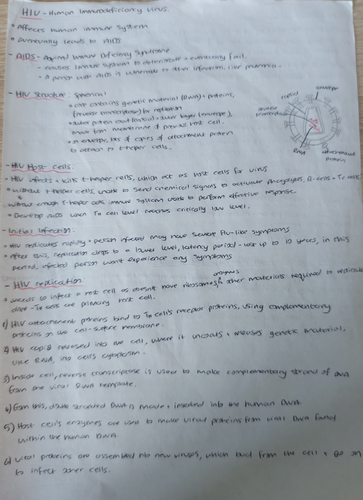 HIV - Human Immunodeficiency Virus.
• Affects human immune system
• eventually leads to AIDS
- AIDS - Aquired Immune Deficiency Syndrome
- causes immune system to deteriorate + eventually fail.
- A person with AIDS is vulnerable to other infections, like pneumonia.
- HIV Structure - Spherical
• core contains genetic material (RNA) + proteins,
(reverse transcriptase) for replication
• outer protein coat (capsid) + outer layer (envelope),
made from membrane of previous host cell.
• On envelope, lots of copies of attachment protein
to attach to t-helper cells.
capsid
envelope
reverse transcriptase
RNA
attachment protein
- HIV Host Cells.
• HIV infects + kills t-helper cells, which act as host cells for virus
• without t-helper cells unable to send chemical signals to activate phagocytes, B-cells + Tc cells
• without enough T-helper cells immune system unable to perform effective response.
• Develop AIDS when TH cell level reaches critically low level.
- Initial Infection.
• HIV replicates rapidly + person infected may have severe flu-like symptoms
• after this, replication drops to a lower level, latency period - last up to 10 years, in this
period, infected person won't experience any symptoms
- HIV replication
• needs to infect a host cell as doesnt have ribosomes, enzymes & other materials required to replicate
alone - TH cells are primary host cell.
1) HIV attachment proteins bind to TH cells receptor proteins, using complementary
proteins on the cell-surface membrane.
2) HIV capsid released into the cell, where it uncoats + releases genetic material,
like RNA, into cell's cytoplasm.
3) Inside cell, reverse transcriptase is used to make complementary strand of DNA
from the viral RNA template.
4) From this, double stranded DNA is made + inserted into the human DNA.
5) Host cell's enzymes are used to make viral proteins from viral DNA found
within the human DNA.
6) Viral proteins are assembled into new viruses, which bud from the cell + go on
to infect other cells.